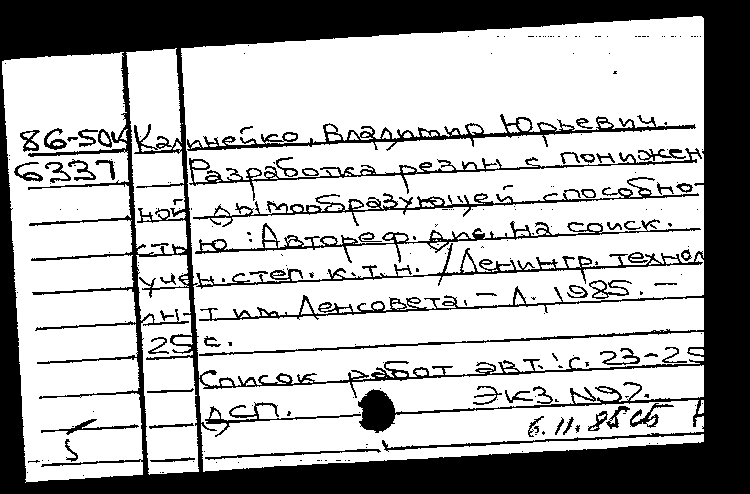 86-50к Калинейко, Владимир Юрьевич.
6337 Разработка резин с понижен
ной дымообразующей способно-
стью : Автореф. дис. на соиск.
учен. степ. к.т.н. / Ленингр. технол
ин-т им. Ленсовета. - Л., 1985. -
25 с.
Список работ авт.: с. 23-25
ДСП. Экз. №97.
5 6.11.85